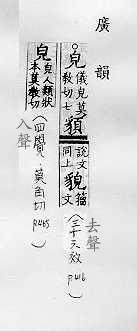 廣韻
皃儀皃莫教切七䫉說文同上貌籀文
(三十六效 p416)
去聲
皃皃人類狀本莫教切
(四覺 莫角切 p465)
入聲